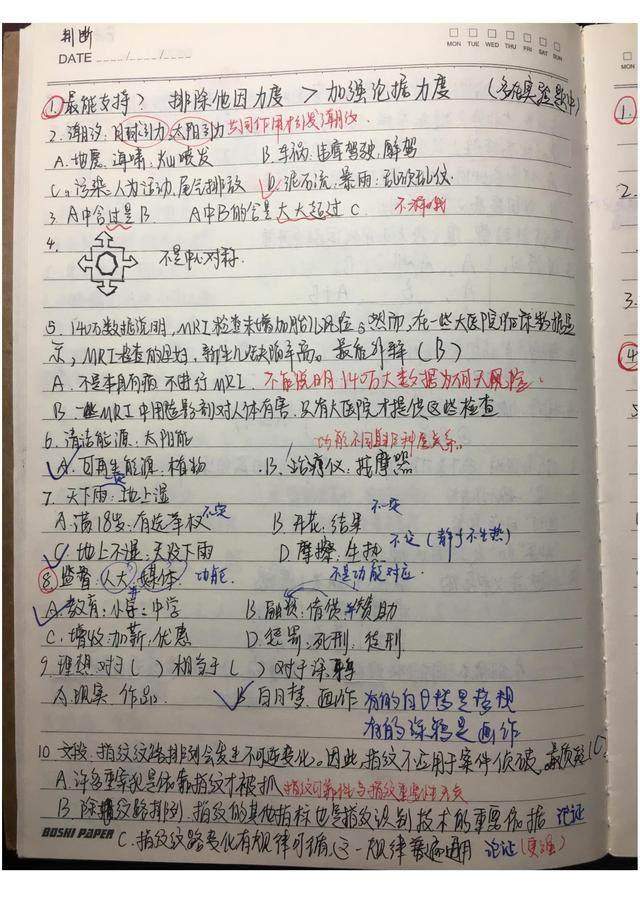 判断
DATE
MON TUE WED THU FRI SAT SUN
①最能支持? 排除他因力度 > 加强论据力度 (多在实验题中)
2. 潮汐:月球引力:太阳引力 共同作用才引发潮汐
A. 地震:海啸:火山喷发 B. 车祸:违章驾驶:醉驾
C. 污染:人为活动:尾气排放 D. 泥石流:暴雨:乱砍乱伐
3. A中含过是B A中B的含量大大超过C
4. 不是中心对称.
5. 140万数据说明,MRI检查未增加胎儿风险。然而,在一些大医院临床数据显
示,MRI检查的孕妇,新生儿缺陷率高。最能外释 (B)
A. 不是本身有病 不进行MRI 不能说明140万大数据为何无风险.
B. 一些MRI中用险影剂对人体有害,只有大医院才提供这些检查
6. 清洁能源:太阳能 功能不同且非种属关系。
A. 可再生能源:植物 B. 治疗仪:按摩器
7. 天下雨:地上湿
A. 满18岁:有选举权 不定 B. 开花:结果 不一定
C. 地上不湿:天没下雨 D. 摩擦:生热 不定(静f不生热)
8. 监督:人大:媒体 功能. 不是功能对应.
A. 教育:小学:中学 B. 融资:借贷:赞助
C. 增收:加薪:优惠 D. 惩罚:死刑:徒刑
9. 理想 对于( ) 相当于( ) 对于 涂鸦
A. 现实 作品 B 白日梦 画作 有的白日梦是梦想
有的涂鸦是画作
10 文段:指纹纹路排列会发生不可逆变化。因此,指纹不应用于案件侦破 最质疑 C
A. 许多重案犯是依靠指纹才被抓 指纹可靠性与指纹重要性无关
B. 除指纹路排列,指纹的其他指标也是指纹识别技术的重要依据 论证
BOSHI PAPER C. 指纹纹路变化有规律可循,这一规律普遍通用 论证(更强)
1.
2.
3.
④